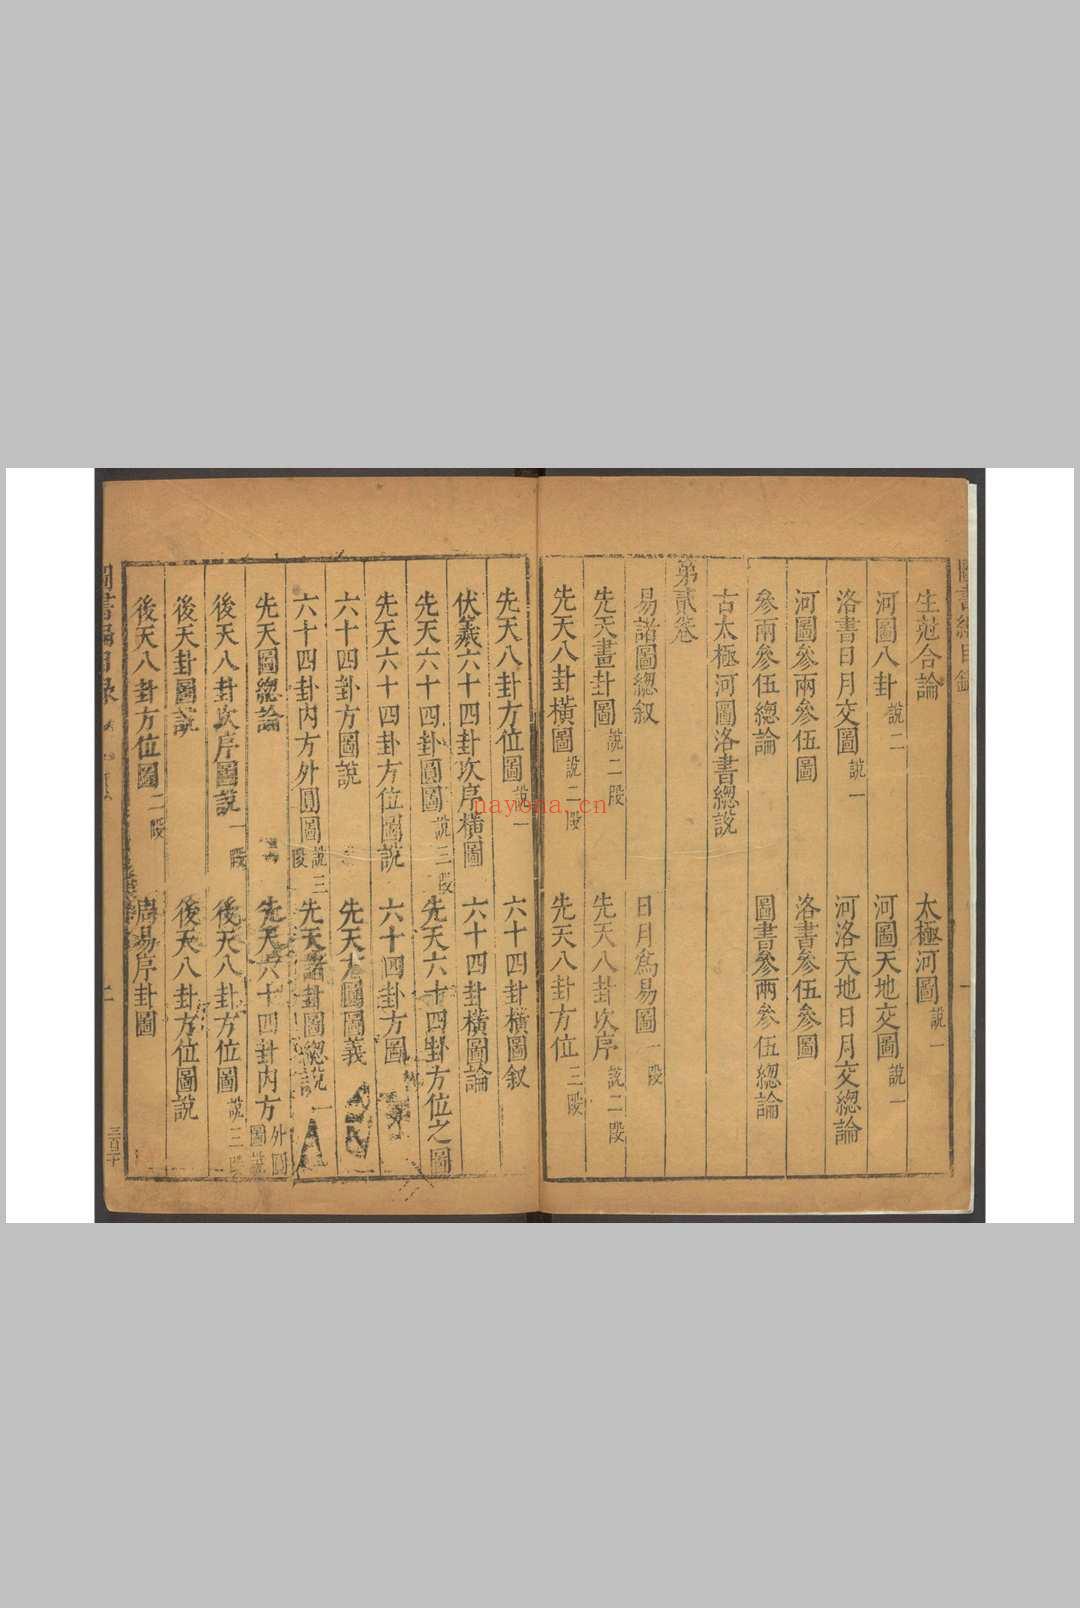 生菢合論　太極河圖說一
河圖八卦說二　河圖天地交圖說一
洛書日月交圖說一　河洛天地日月交總論
河圖參兩參伍圖　洛書參伍參圖
參兩參伍總論　圖書參兩參伍總論
古太極河圖洛書總說
第貳卷
易諸圖總叙　日月為易圖一段
先天畫卦圖說二段　先天八卦次序說二段
先天八卦橫圖說二段　先天八卦方位三段
先天八卦方位圖說一　六十四卦橫圖叙
伏羲六十四卦次序橫圖　六十四卦橫圖論
先天六十四卦圓圖說三段　先天六十四卦方位之圖
先天六十四卦方位圖說　六十四卦方圖
六十四卦方圖說　先天方圓圖義
六十四卦內方外圓圖說三段　先天諸卦圖總說一
先天圖總論　先天六十四卦內方外圓圖說
後天八卦次序圖說一段　後天八卦方位圖說三段
後天卦圖說　後天八卦方位圖說
後天八卦方位圖二段　周易序卦圖
圖書編目錄
nayona.cn